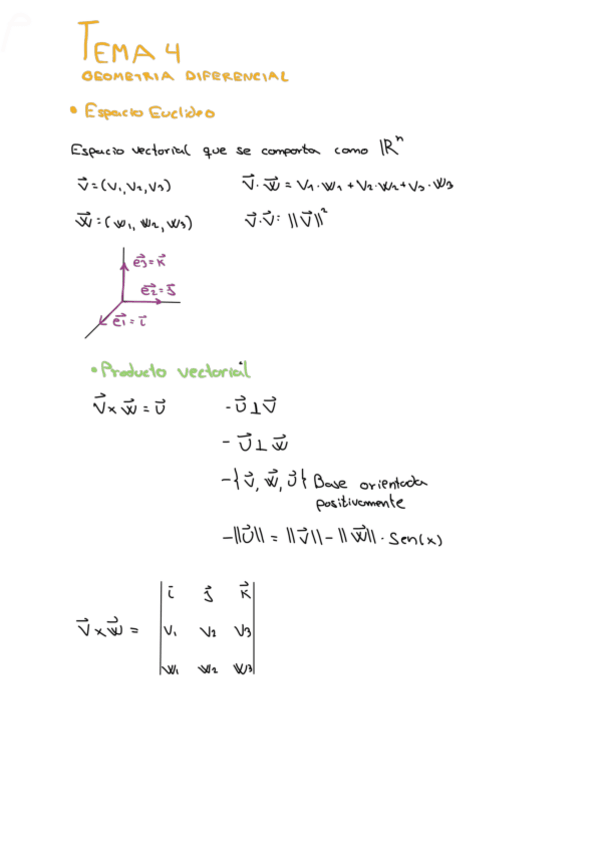 TEMA 4
GEOMETRIA DIFERENCIAL
• Espacio Euclideo
Espacio vectorial que se comporta como ℝⁿ
v⃗ = (v₁, v₂, v₃)  v⃗ · w⃗ = v₁ · w₁ + v₂ · w₂ + v₃ · w₃
w⃗ = (w₁, w₂, w₃)  v⃗ · v⃗ = ‖v⃗‖²
e⃗₃ = k⃗
e⃗₂ = j⃗
e⃗₁ = i⃗
• Producto vectorial
v⃗ × w⃗ = u⃗  - u⃗ ⊥ v⃗
- u⃗ ⊥ w⃗
- {v⃗, w⃗, u⃗} Base orientada
positivamente
- ‖u⃗‖ = ‖v⃗‖ - ‖w⃗‖ · sen(x)
i⃗ j⃗ k⃗
v⃗ × w⃗ = | v₁ v₂ v₃ |
w₁ w₂ w₃